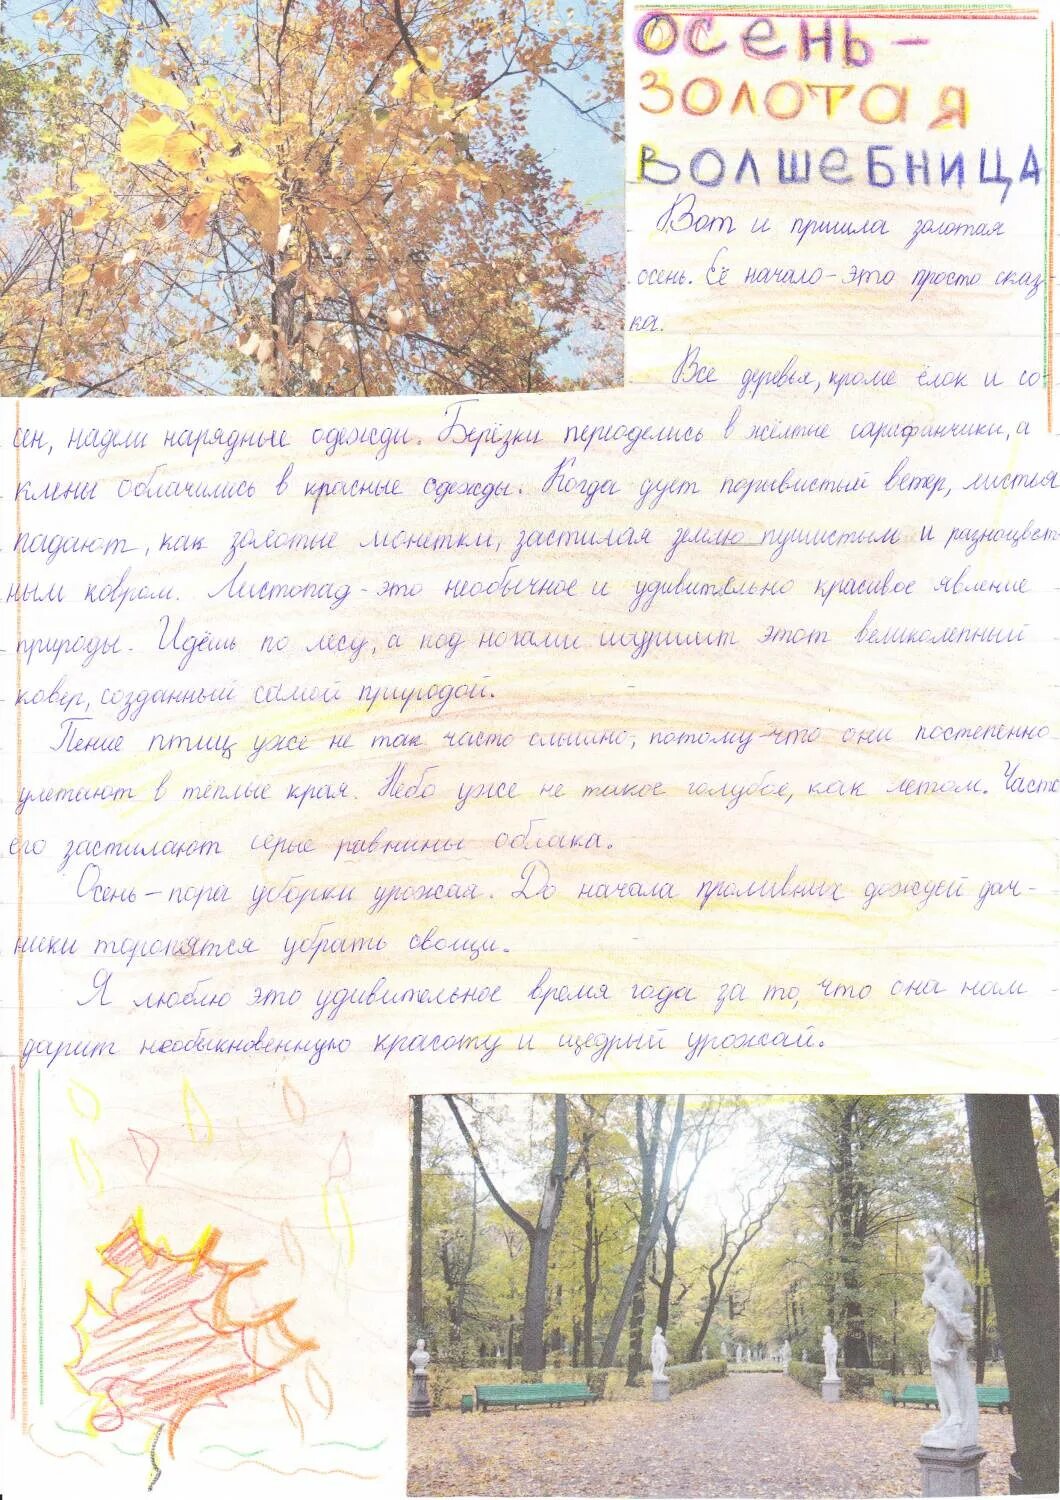 ОСЕНЬ –
ЗОЛОТАЯ
ВОЛШЕБНИЦА
Вот и пришла золотая
осень. Её начало – это просто сказ-
ка.
Все деревья, кроме ёлок и со-
сен, надели нарядные одежды. Берёзки переоделись в жёлтые сарафанчики, а
клёны облачились в красные одежды. Когда дует порывистый ветер, листья
падают, как золотые монетки, застилая землю пушистым и разноцвет-
ным ковром. Листопад – это необычное и удивительно красивое явление
природы. Идёшь по лесу, а под ногами шуршит этот великолепный
ковёр, созданный самой природой.
Пение птиц уже не так часто слышно, потому-что они постепенно
улетают в тёплые края. Небо уже не такое голубое, как летом. Часто
его застилают серые равнины облака.
Осень – пора уборки урожая. До начала проливных дождей дач-
ники торопятся убрать овощи.
Я люблю это удивительное время года за то, что она нам
дарит необыкновенную красоту и щедрый урожай.